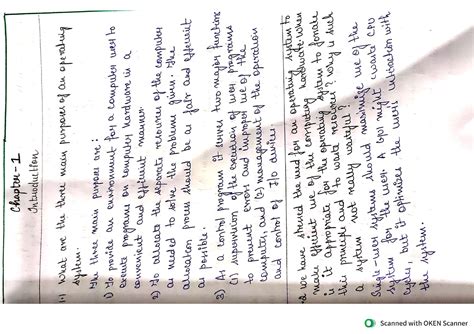 Chapter-1
Introduction
1.1 What are the three main purposes of an operating
system?
The three main purpose are:
1) To provide an environment for a computer user to
execute programs on computer hardware in a
convenient and efficient manner.
2) To allocate the separate resources of the computer
as needed to solve the problems given. The
allocation process should be as fair and efficient
as possible.
3) As a control program it serves two major functions
(1) supervision of the execution of user programs
to prevent errors and improper use of the
computer, and (2) management of the operation
and control of I/O devices
we have stressed the need for an operating system to
make efficient use of the computing hardware. When
is it appropriate for the operating system to forsake
this principle and to "waste" resources? Why is such
a system not really wasteful?
Single-user systems should maximize use of the
system for the user. A GUI might "waste" CPU
cycles, but it optimizes the user's interaction with
the system.
Scanned with OKEN Scanner